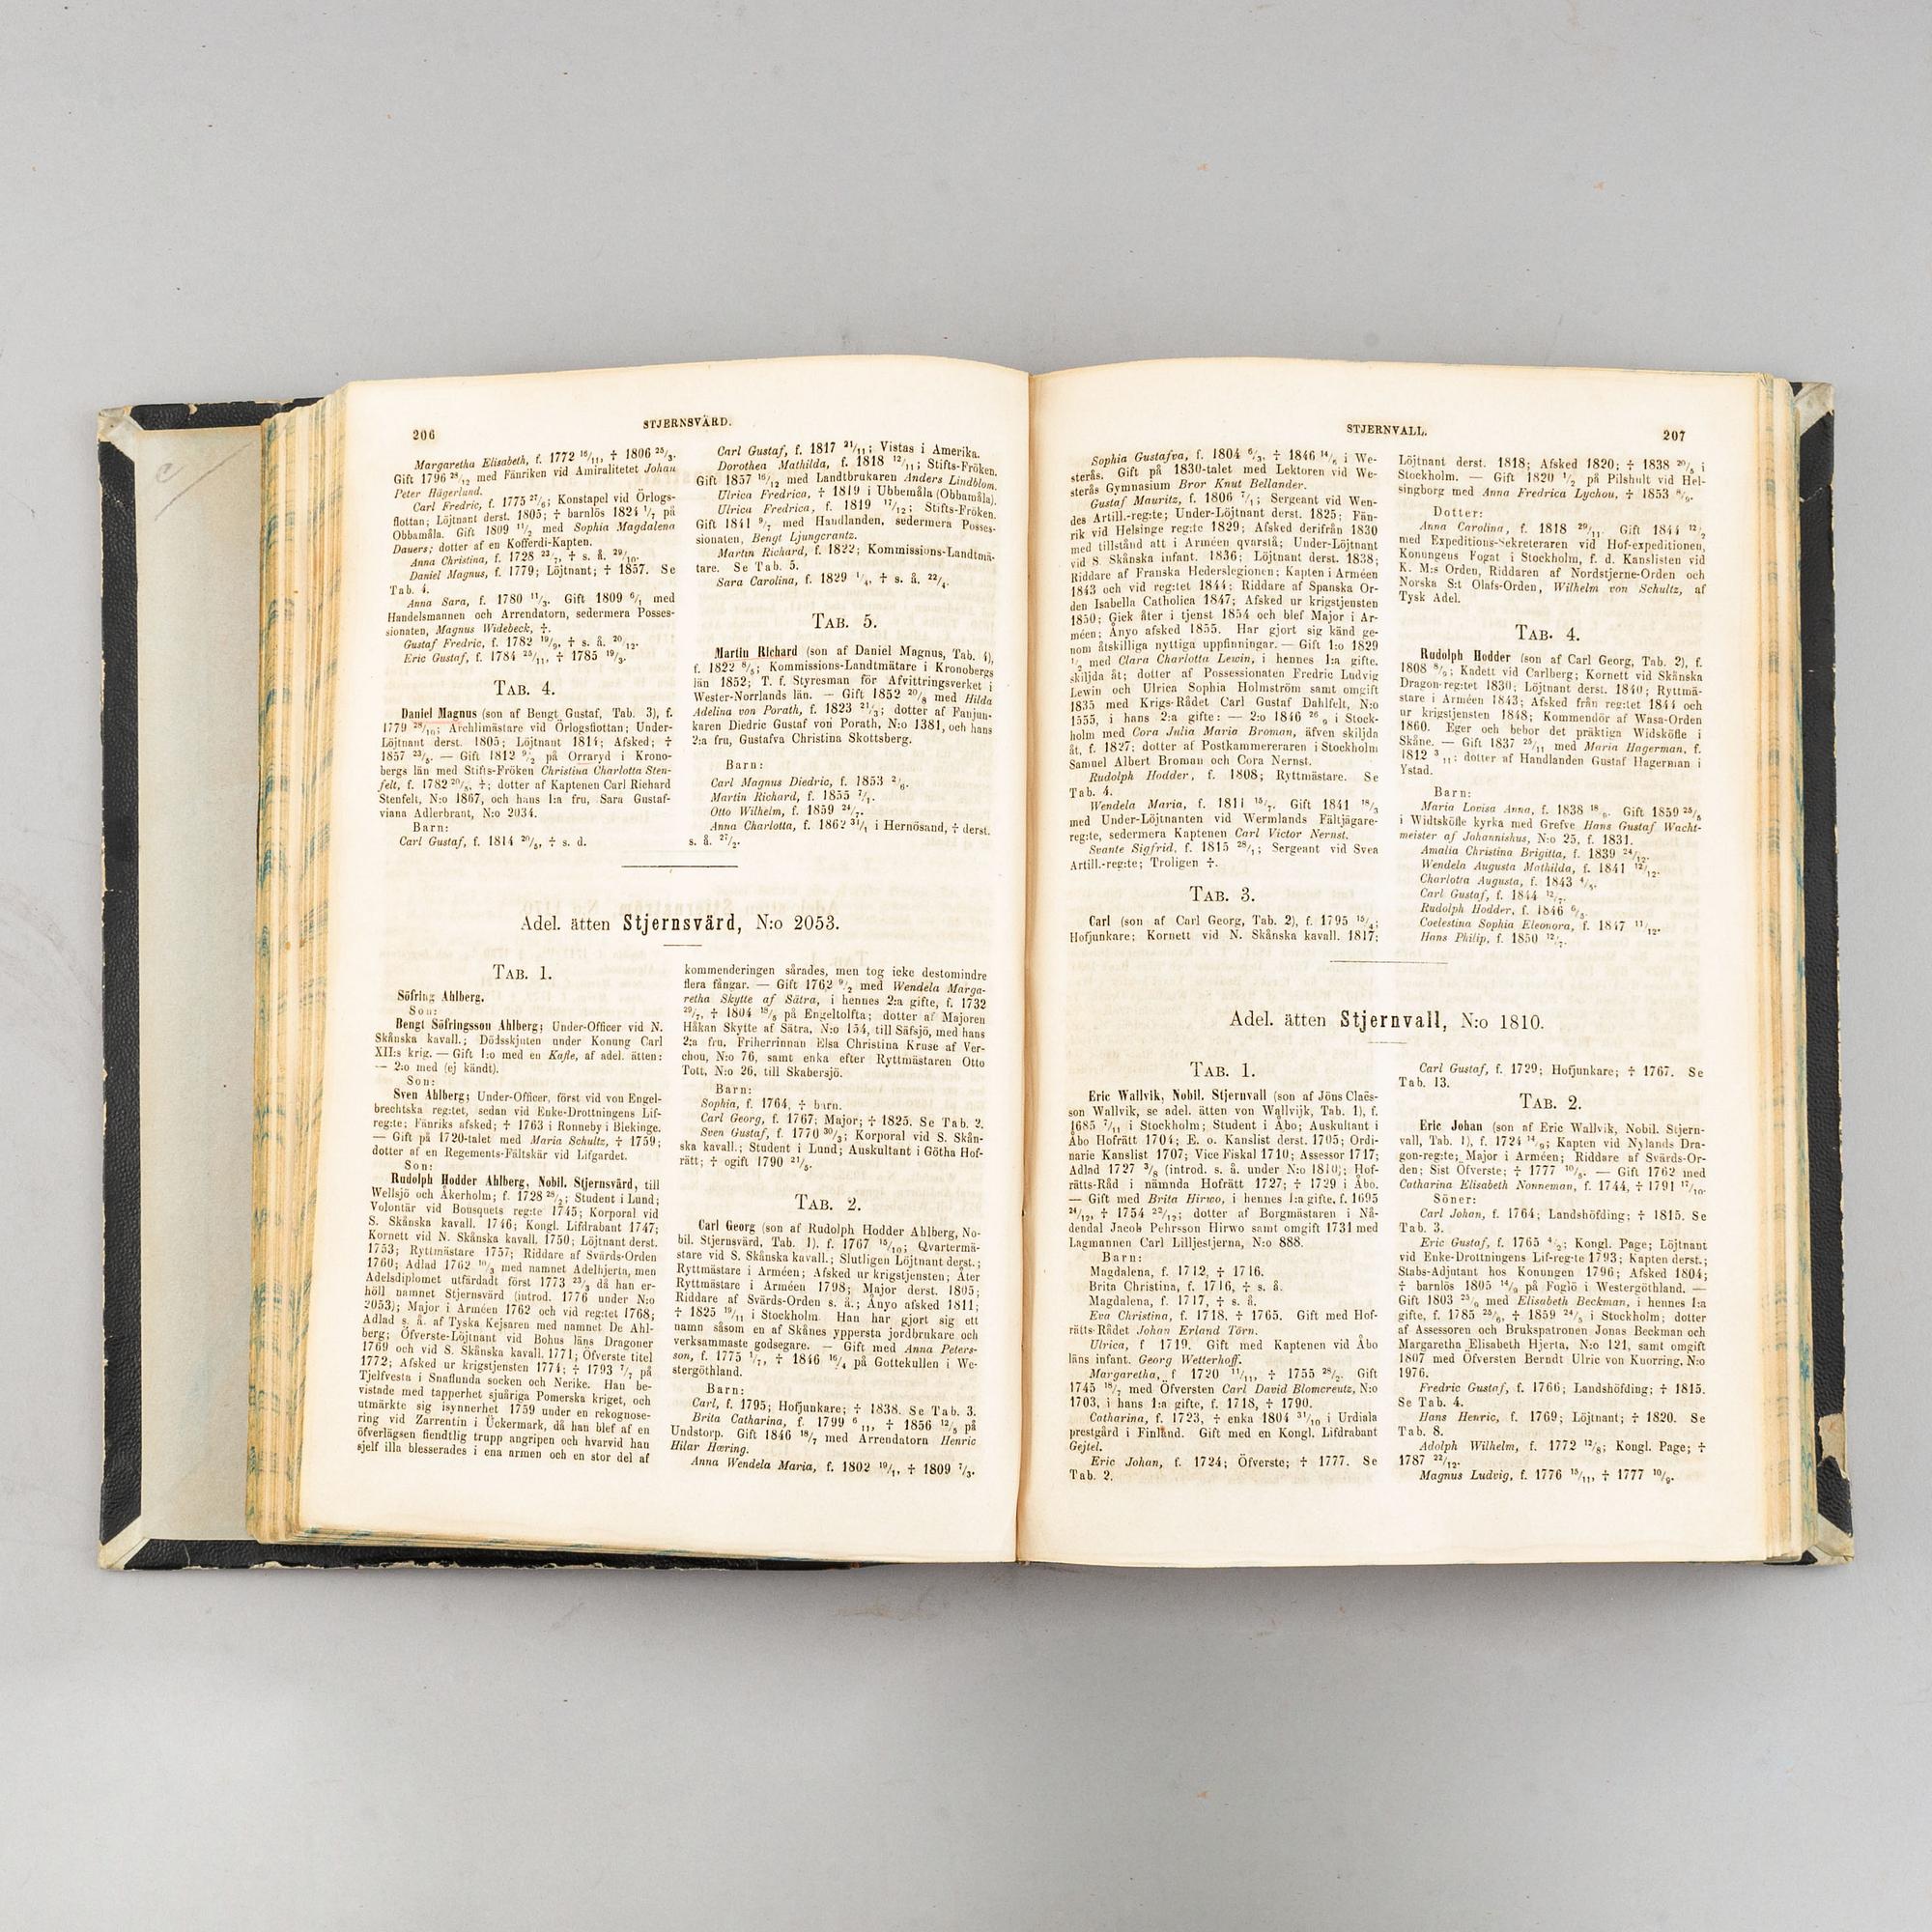 206
STJERNSVÄRD.
Margaretha Elisabeth, f. 1772 16/11, † 1806 25/3.
Gift 1796 28/12 med Fänriken vid Amiralitetet Johan
Peter Hägerlund.
Carl Fredric, f. 1775 27/6; Konstapel vid Örlogs-
flottan; Löjtnant derst. 1805; † barnlös 1824 1/7 på
Obbamåla. Gift 1809 11/2 med Sophia Magdalena
Dauers; dotter af en Kofferdi-Kapten.
Anna Christina, f. 1728 23/7, † s. å. 29/10.
Daniel Magnus, f. 1779; Löjtnant; † 1857. Se
Tab. 4.
Anna Sara, f. 1780 11/3. Gift 1809 6/1 med
Handelsmannen och Arrendatorn, sedermera Posses-
sionaten, Magnus Widebeck, †.
Gustaf Fredric, f. 1782 19/9, † s. å. 20/12.
Eric Gustaf, f. 1784 25/11, † 1785 19/3.
TAB. 4.
Daniel Magnus (son af Bengt Gustaf, Tab. 3), f.
1779 28/10; Archlimästare vid Örlogsflottan; Under-
Löjtnant derst. 1805; Löjtnant 1814; Afsked; †
1857 23/5. — Gift 1812 9/2 på Orraryd i Krono-
bergs län med Stifts-Fröken Christina Charlotta Sten-
felt, f. 1782 20/8, †; dotter af Kaptenen Carl Richard
Stenfelt, N:o 1867, och hans 1:a fru, Sara Gustaf-
viana Adlerbrant, N:o 2034.
Barn:
Carl Gustaf, f. 1814 20/5, † s. d.
Carl Gustaf, f. 1817 21/11; Vistas i Amerika.
Dorothea Mathilda, f. 1818 12/11; Stifts-Fröken.
Gift 1857 16/12 med Landtbrukaren Anders Lindblom.
Ulrica Fredrica, † 1819 i Ubbemåla (Obbamåla).
Ulrica Fredrica, f. 1819 17/12; Stifts-Fröken.
Gift 1841 9/7 med Handlanden, sedermera Posses-
sionaten, Bengt Ljungcrantz.
Martin Richard, f. 1822; Kommissions-Landtmä-
tare. Se Tab. 5.
Sara Carolina, f. 1829 1/4, † s. å. 22/4.
TAB. 5.
Martin Richard (son af Daniel Magnus, Tab. 4),
f. 1822 8/5; Kommissions-Landtmätare i Kronobergs
län 1852; T. f. Styresman för Afvittringsverket i
Wester-Norrlands län. — Gift 1852 20/8 med Hilda
Adelina von Porath, f. 1823 21/3; dotter af Fanjun-
karen Diedric Gustaf von Porath, N:o 1381, och hans
2:a fru, Gustafva Christina Skottsberg.
Barn:
Carl Magnus Diedric, f. 1853 2/6.
Martin Richard, f. 1855 7/1.
Otto Wilhelm, f. 1859 24/7.
Anna Charlotta, f. 1862 31/1 i Hernösand, † derst.
s. å. 27/2.
Adel. ätten Stjernsvärd, N:o 2053.
TAB. 1.
Söfring Ahlberg.
Son:
Bengt Söfringsson Ahlberg; Under-Officer vid N.
Skånska kavall.; Dödsskjuten under Konung Carl
XII:s krig. — Gift 1:o med en Kafle, af adel. ätten:
— 2:o med (ej kändt).
Son:
Sven Ahlberg; Under-Officer, först vid von Engel-
brechtska reg:tet, sedan vid Enke-Drottningens Lif-
reg:te; Fänriks afsked; † 1763 i Ronneby i Blekinge.
— Gift på 1720-talet med Maria Schultz, † 1759;
dotter af en Regements-Fältskär vid Lifgardet.
Son:
Rudolph Hodder Ahlberg, Nobil. Stjernsvärd, till
Wellsjö och Åkerholm; f. 1728 28/2; Student i Lund;
Volontär vid Bousquets reg:te 1745; Korporal vid
S. Skånska kavall. 1746; Kongl. Lifdrabant 1747;
Kornett vid N. Skånska kavall. 1750; Löjtnant derst.
1753; Ryttmästare 1757; Riddare af Svärds-Orden
1760; Adlad 1762 10/3 med namnet Adelhjerta, men
Adelsdiplomet utfärdadt först 1773 23/3 då han er-
höll namnet Stjernsvärd (introd. 1776 under N:o
2053); Major i Arméen 1762 och vid reg:tet 1768;
Adlad s. å. af Tyska Kejsaren med namnet De Ahl-
berg; Öfverste-Löjtnant vid Bohus läns Dragoner
1769 och vid S. Skånska kavall. 1771; Öfverste titel
1772; Afsked ur krigstjensten 1774; † 1793 7/7 på
Tjelfvesta i Snaflunda socken och Nerike. Han be-
vistade med tapperhet sjuåriga Pomerska kriget, och
utmärkte sig isynnerhet 1759 under en rekognose-
ring vid Zarrentin i Uckermark, då han blef af en
öfverlägsen fiendtlig trupp angripen och hvarvid han
sjelf illa blesserades i ena armen och en stor del af
kommenderingen sårades, men tog icke destomindre
flera fångar. — Gift 1762 9/2 med Wendela Marga-
retha Skytte af Sätra, i hennes 2:a gifte, f. 1732
29/7, † 1804 18/5 på Engeltolfta; dotter af Majoren
Håkan Skytte af Sätra, N:o 154, till Säfsjö, med hans
2:a fru, Friherrinnan Elsa Christina Kruse af Ver-
chou, N:o 76, samt enka efter Ryttmästaren Otto
Tott, N:o 26, till Skabersjö.
Barn:
Sophia, f. 1764, † barn.
Carl Georg, f. 1767; Major; † 1825. Se Tab. 2.
Sven Gustaf, f. 1770 30/3; Korporal vid S. Skån-
ska kavall.; Student i Lund; Auskultant i Götha Hof-
rätt; † ogift 1790 21/5.
TAB. 2.
Carl Georg (son af Rudolph Hodder Ahlberg, No-
bil. Stjernsvärd, Tab. 1), f. 1767 15/10; Qvartermä-
stare vid S. Skånska kavall.; Slutligen Löjtnant derst.;
Ryttmästare i Arméen; Afsked ur krigstjensten; Åter
Ryttmästare i Arméen 1798; Major derst. 1805;
Riddare af Svärds-Orden s. å.; Ånyo afsked 1811;
† 1825 19/11 i Stockholm. Han har gjort sig ett
namn såsom en af Skånes yppersta jordbrukare och
verksammaste godsegare. — Gift med Anna Peters-
son, f. 1775 1/7, † 1846 16/4 på Gottekullen i We-
stergöthland.
Barn:
Carl, f. 1795; Hofjunkare; † 1838. Se Tab. 3.
Brita Catharina, f. 1799 6/11, † 1856 12/5 på
Undstorp. Gift 1846 18/7 med Arrendatorn Henric
Hilar Hæring.
Anna Wendela Maria, f. 1802 19/1, † 1809 7/3.
STJERNVALL.
207
Sophia Gustafva, f. 1804 6/3, † 1846 14/6 i We-
sterås. Gift på 1830-talet med Lektoren vid We-
sterås Gymnasium Bror Knut Bellander.
Gustaf Mauritz, f. 1806 7/1; Sergeant vid Wen-
des Artill.-reg:te; Under-Löjtnant derst. 1825; Fän-
rik vid Helsinge reg:te 1829; Afsked derifrån 1830
med tillstånd att i Arméen qvarstå; Under-Löjtnant
vid S. Skånska infant. 1836; Löjtnant derst. 1838;
Riddare af Franska Hederslegionen; Kapten i Arméen
1843 och vid reg:tet 1844; Riddare af Spanska Or-
den Isabella Catholica 1847; Afsked ur krigstjensten
1850; Gick åter i tjenst 1854 och blef Major i Ar-
méen; Ånyo afsked 1855. Har gjort sig känd ge-
nom åtskilliga nyttiga uppfinningar. — Gift 1:o 1829
1/2 med Clara Charlotta Lewin, i hennes 1:a gifte,
skiljda åt; dotter af Possessionaten Fredric Ludvig
Lewin och Ulrica Sophia Holmström samt omgift
1835 med Krigs-Rådet Carl Gustaf Dahlfelt, N:o
1555, i hans 2:a gifte: — 2:o 1846 26/9 i Stock-
holm med Cora Julia Maria Broman, äfven skiljda
åt, f. 1827; dotter af Postkammereraren i Stockholm
Samuel Albert Broman och Cora Nernst.
Rudolph Hodder, f. 1808; Ryttmästare. Se
Tab. 4.
Wendela Maria, f. 1811 15/7. Gift 1841 18/3
med Under-Löjtnanten vid Wermlands Fältjägare-
reg:te, sedermera Kaptenen Carl Victor Nernst.
Svante Sigfrid, f. 1815 28/1; Sergeant vid Svea
Artill.-reg:te; Troligen †.
TAB. 3.
Carl (son af Carl Georg, Tab. 2), f. 1795 15/4;
Hofjunkare; Kornett vid N. Skånska kavall. 1817;
Löjtnant derst. 1818; Afsked 1820; † 1838 20/5 i
Stockholm. — Gift 1820 1/2 på Pilshult vid Hel-
singborg med Anna Fredrica Lychou, † 1853 8/9.
Dotter:
Anna Carolina, f. 1818 29/11. Gift 1844 12/2
med Expeditions-Sekreteraren vid Hof-expeditionen,
Konungens Fogat i Stockholm, f. d. Kanslisten vid
K. M:s Orden, Riddaren af Nordstjerne-Orden och
Norska S:t Olafs-Orden, Wilhelm von Schultz, af
Tysk Adel.
TAB. 4.
Rudolph Hodder (son af Carl Georg, Tab. 2), f.
1808 8/9; Kadett vid Carlberg; Kornett vid Skånska
Dragon-reg:tet 1830; Löjtnant derst. 1840; Ryttmä-
stare i Arméen 1843; Afsked från reg:tet 1844 och
ur krigstjensten 1848; Kommendör af Wasa-Orden
1860. Eger och bebor det präktiga Widsköfle i
Skåne. — Gift 1837 25/11 med Maria Hagerman, f.
1812 3/11; dotter af Handlanden Gustaf Hagerman i
Ystad.
Barn:
Maria Lovisa Anna, f. 1838 18/6. Gift 1859 25/8
i Widtsköfle kyrka med Grefve Hans Gustaf Wacht-
meister af Johannishus, N:o 25, f. 1831.
Amalia Christina Brigitta, f. 1839 24/12.
Wendela Augusta Mathilda, f. 1841 12/12.
Charlotta Augusta, f. 1843 4/5.
Carl Gustaf, f. 1844 12/7.
Rudolph Hodder, f. 1846 6/5.
Coelestina Sophia Eleonora, f. 1847 11/12.
Hans Philip, f. 1850 12/7.
Adel. ätten Stjernvall, N:o 1810.
TAB. 1.
Eric Wallvik, Nobil. Stjernvall (son af Jöns Claës-
son Wallvik, se adel. ätten von Wallvijk, Tab. 1), f.
1685 7/11 i Stockholm; Student i Åbo; Auskultant i
Åbo Hofrätt 1704; E. o. Kanslist derst. 1705; Ordi-
narie Kanslist 1707; Vice Fiskal 1710; Assessor 1717;
Adlad 1727 3/8 (introd. s. å. under N:o 1810); Hof-
rätts-Råd i nämnda Hofrätt 1727; † 1729 i Åbo.
— Gift med Brita Hirwo, i hennes 1:a gifte, f. 1695
24/12, † 1754 22/12; dotter af Borgmästaren i Nå-
dendal Jacob Pehrsson Hirwo samt omgift 1731 med
Lagmannen Carl Lilljestjerna, N:o 888.
Barn:
Magdalena, f. 1712, † 1716.
Brita Christina, f. 1716, † s. å.
Magdalena, f. 1717, † s. å.
Eva Christina, f. 1718, † 1765. Gift med Hof-
rätts-Rådet Johan Erland Törn.
Ulrica, f 1719. Gift med Kaptenen vid Åbo
läns infant. Georg Wetterhoff.
Margaretha, f 1720 11/11, † 1755 28/2. Gift
1745 18/7 med Öfversten Carl David Blomcreutz, N:o
1703, i hans 1:a gifte, f. 1718, † 1790.
Catharina, f. 1723, † enka 1804 31/10 i Urdiala
prestgård i Finland. Gift med en Kongl. Lifdrabant
Gejtel.
Eric Johan, f. 1724; Öfverste; † 1777. Se
Tab. 2.
Carl Gustaf, f. 1729; Hofjunkare; † 1767. Se
Tab. 13.
TAB. 2.
Eric Johan (son af Eric Wallvik, Nobil. Stjern-
vall, Tab. 1), f. 1724 14/9; Kapten vid Nylands Dra-
gon-reg:te; Major i Arméen; Riddare af Svärds-Or-
den; Sist Öfverste; † 1777 10/8. — Gift 1762 med
Catharina Elisabeth Nonneman, f. 1744, † 1791 17/10.
Söner:
Carl Johan, f. 1764; Landshöfding; † 1815. Se
Tab. 3.
Eric Gustaf, f. 1765 4/2; Kongl. Page; Löjtnant
vid Enke-Drottningens Lif-reg:te 1793; Kapten derst.;
Stabs-Adjutant hos Konungen 1796; Afsked 1804;
† barnlös 1805 14/9 på Foglö i Westergöthland. —
Gift 1803 25/9 med Elisabeth Beckman, i hennes 1:a
gifte, f. 1785 25/6, † 1859 24/5 i Stockholm; dotter
af Assessoren och Brukspatronen Jonas Beckman och
Margaretha Elisabeth Hjerta, N:o 121, samt omgift
1807 med Öfversten Berndt Ulric von Knorring, N:o
1976.
Fredric Gustaf, f. 1766; Landshöfding; † 1815.
Se Tab. 4.
Hans Henric, f. 1769; Löjtnant; † 1820. Se
Tab. 8.
Adolph Wilhelm, f. 1772 12/8; Kongl. Page; †
1787 22/12.
Magnus Ludvig, f. 1776 15/11, † 1777 10/9.